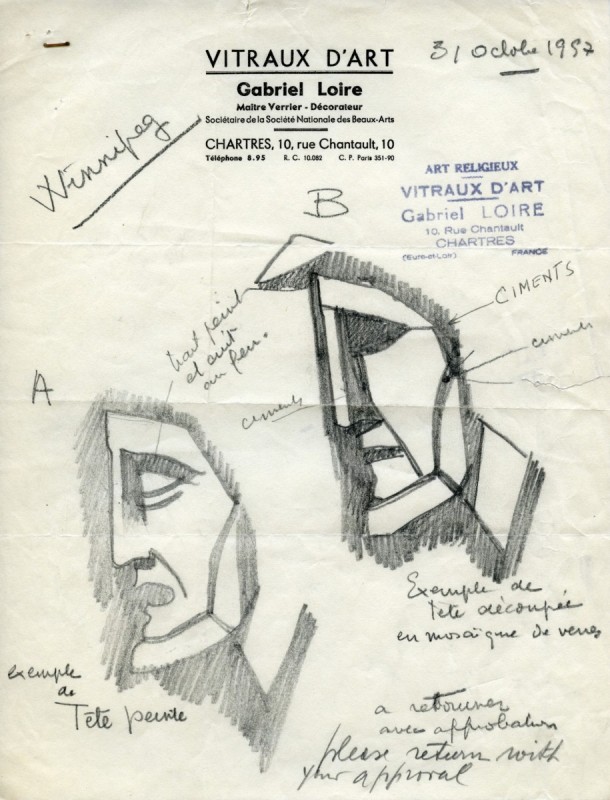 31 Octobre 1957
VITRAUX D'ART
Gabriel Loire
Maître Verrier - Décorateur
Sociétaire de la Société Nationale des Beaux-Arts
CHARTRES, 10, rue Chantault, 10
Téléphone 8.95 R. C. 10.082 C. P. Paris 351-90
Winnipeg
ART RELIGIEUX
VITRAUX D'ART
Gabriel LOIRE
10, Rue Chantault
CHARTRES
(Eure-et-Loir) FRANCE
B
CIMENTS
ciments
trait peint
et cuit
au feu.
ciments
A
Exemple de
Tête découpée
en mosaïque de verres
exemple
de
Tête peinte
a retourner
avec approbation
please return with
your approval